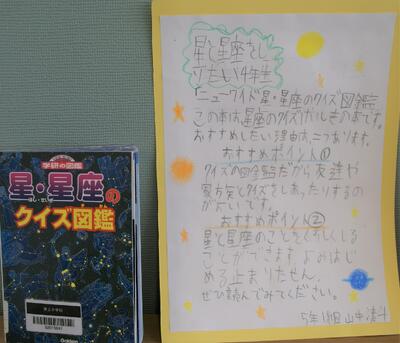 学研の図鑑
星・星座の
ほし・せいざ
クイズ図鑑
Gakken
星と星座をし
りたい4年生
「ニューワイド星・星座のクイズ図鑑
この本は、星座のクイズがしきのあです。
おすすめしたい理由は、二つあります。
おすすめポイント①
クイズの図鑑だから友達や
家方矢とクイズをしあったりするの
がよいです。
おすすめポイント②
星と星座のことをくわしくしる
ことができます。よみはじ
める止まりません。
ぜひ読んでみてください。
5年1組 山中